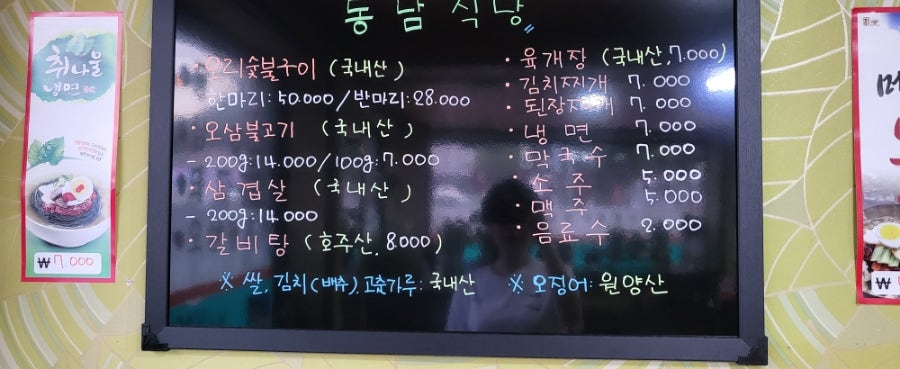 동남식당
· 오리숯불구이 (국내산)
한마리: 50.000 / 반마리: 28.000
· 오삼불고기 (국내산)
- 200g: 14.000 / 100g: 7.000
· 삼겹살 (국내산)
- 200g: 14.000
· 갈비탕 (호주산, 8000)
· 육개장 (국내산, 7.000)
· 김치찌개 7.000
· 된장찌개 7.000
· 냉면 7.000
· 막국수 7.000
· 소주 5.000
· 맥주 5.000
· 음료수 2.000
※ 쌀, 김치(배추), 고춧가루: 국내산
※ 오징어: 원양산
취나물
냉면
₩7.000
메
₩